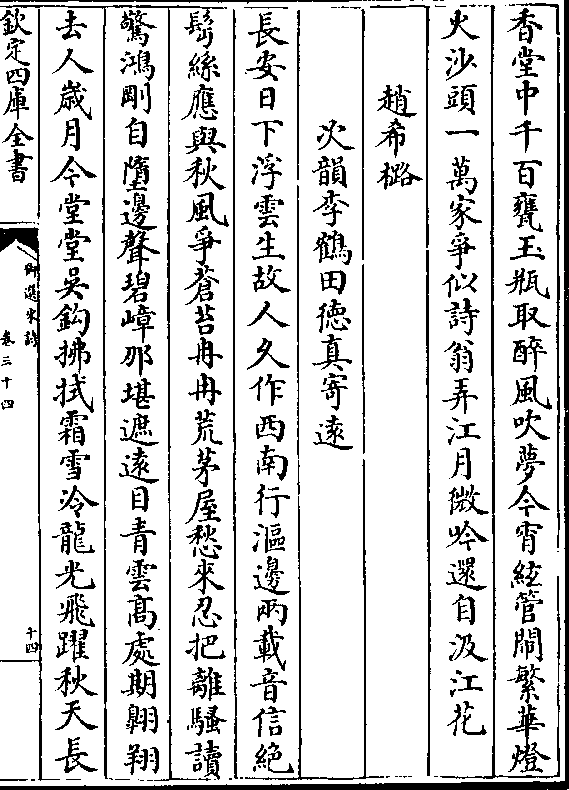 香堂中千百甕玉瓶取醉風吹夢今宵絃管閙繁華燈
火沙頭一萬家爭似詩翁弄江月微吟還自汲江花
趙希𣘼
次韻李鶴田徳真寄逺
長安日下浮雲生故人久作西南行漚邊兩載音信絶
髩絲應與秋風爭蒼苔冉冉荒茅屋愁來忍把離騷讀
驚鴻剛自墮邊聲碧嶂那堪遮逺目青雲髙處期翺翔
去人歳月今堂堂吴鈎拂拭霜雪冷龍光飛躍秋天長
欽定四庫全書
御選宋詩
卷三十四
十四